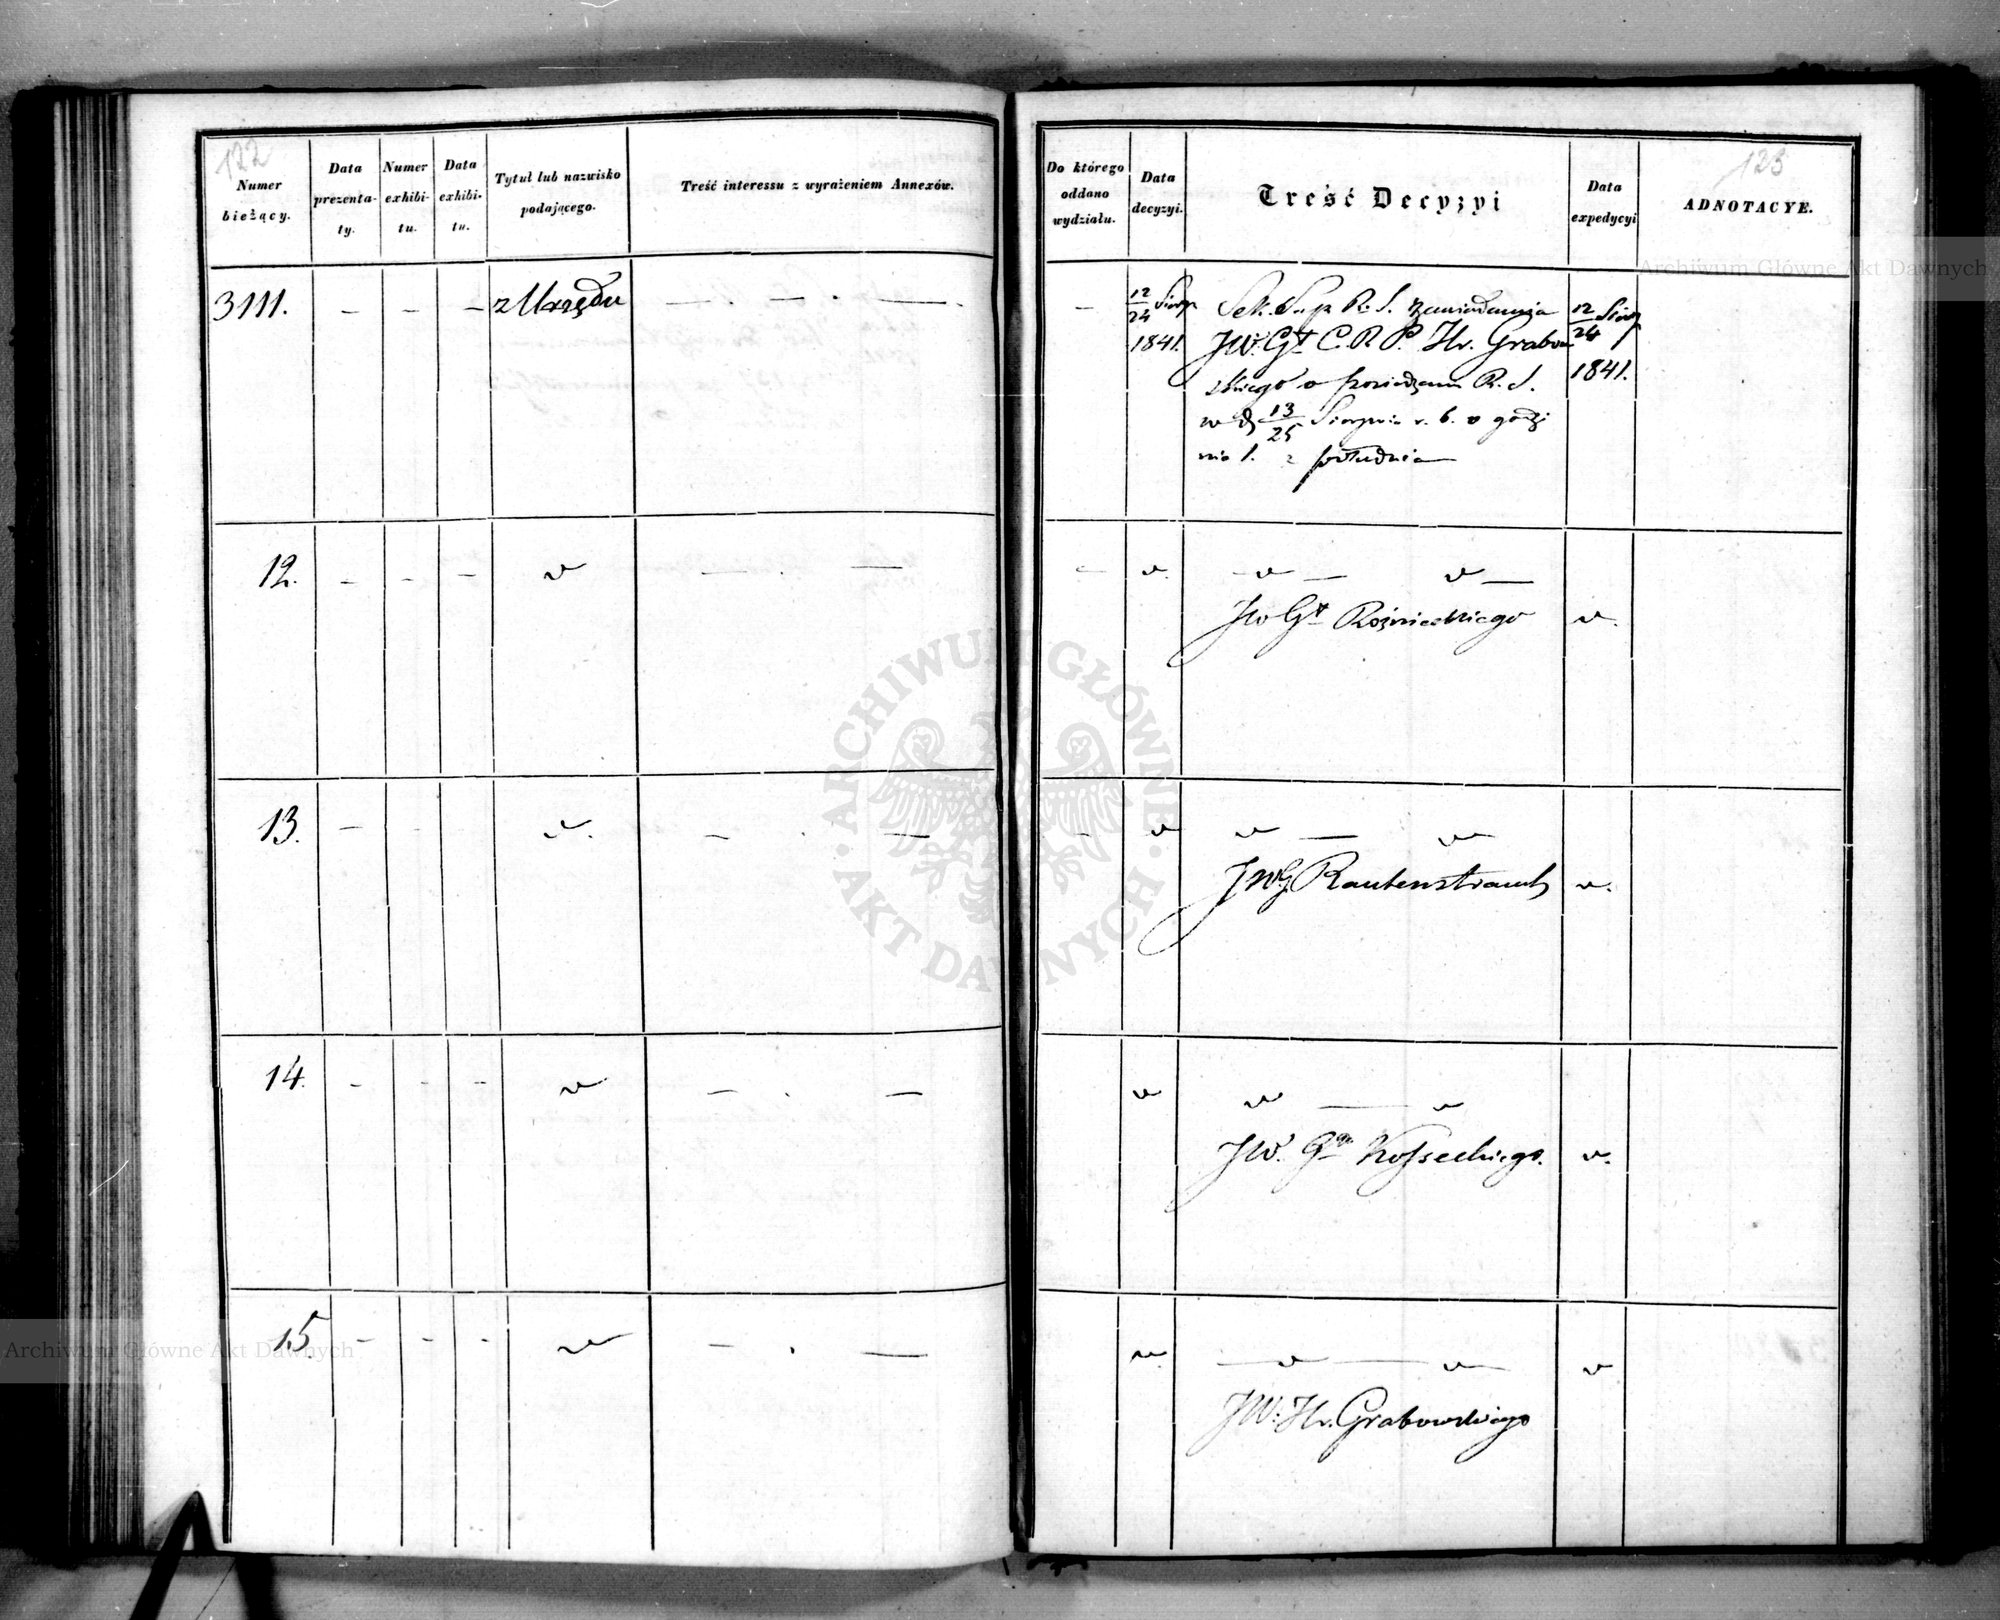 122
Numer bieżący.
Data prezenta-ty.
Numer exhibi-tu.
Data exhibi-tu.
Tytuł lub nazwisko podającego.
Treść interessu z wyrażeniem Annexów.
Do którego oddano wydziału.
Data decyzyi.
Treść Decyzyi
Data expedycyi
ADNOTACYE.
123
3111.
z Urzędu
12/24 Sierp
1841.
Sek. Sup. R. S. zawiadamia
JW. Gł C. R. P. Hr. Grabow
skiego o posiedzeniu R. S.
w d. 13/25 Sierpnia r. b. o godzi
nie 1. z południa
12/24 Sierp
1841.
12.
JW Gł Rożnieckiego
13.
JW G Rautenstrauch
14.
JW. Kosseckiego.
15.
JW. Hr. Grabowskiego
ARCHIWUM GŁÓWNE
AKT DAWNYCH
Archiwum Główne Akt Dawnych
Archiwum Główne Akt Dawnych